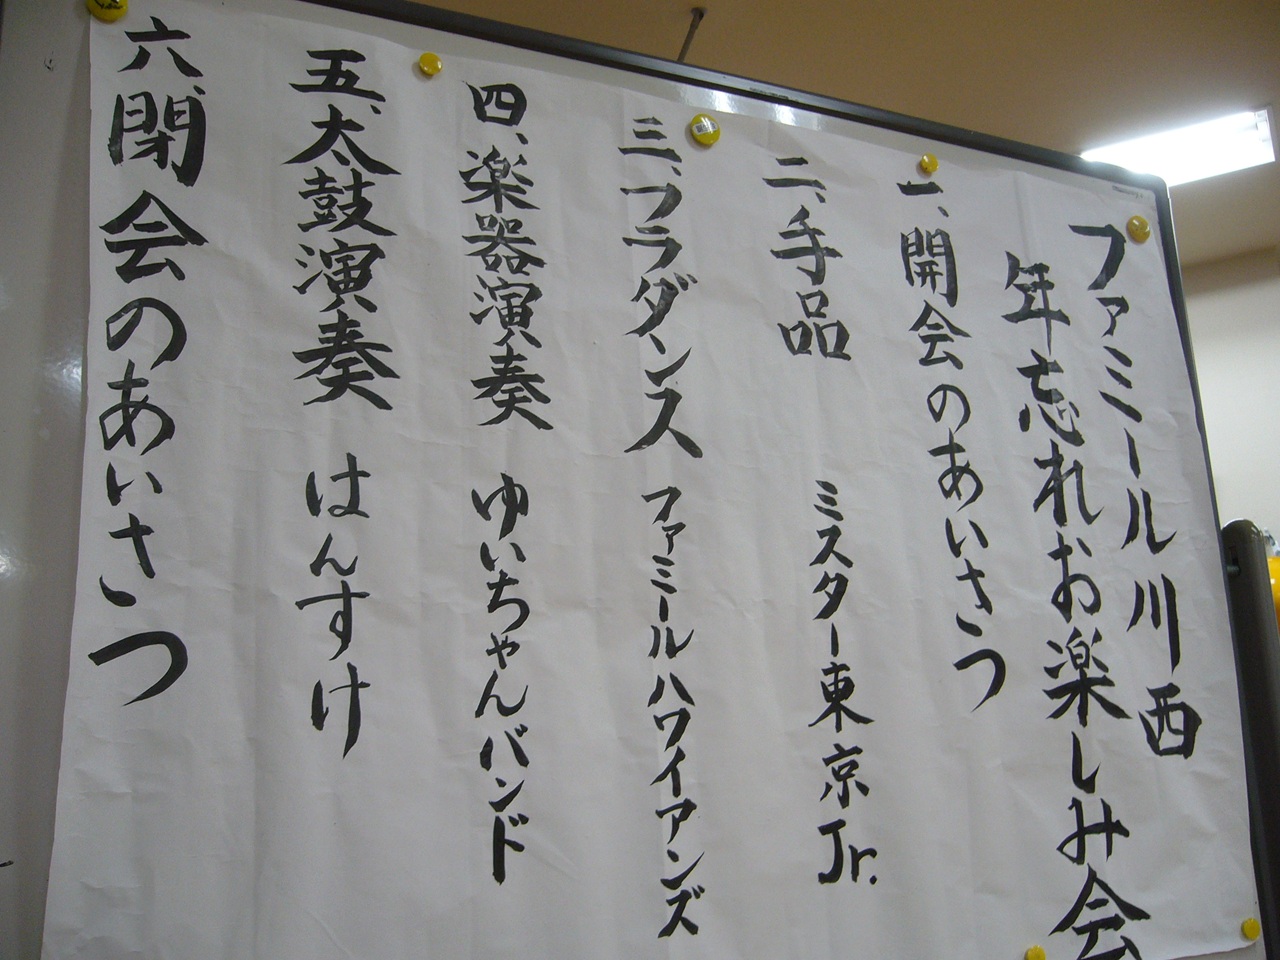 ファミール川西
年忘れお楽しみ会
一、開会のあいさつ
二、手品 ミスター東京Jr.
三、フラダンス ファミールハワイアンズ
四、楽器演奏 ゆいちゃんバンド
五、太鼓演奏 はんすけ
六、閉会のあいさつ